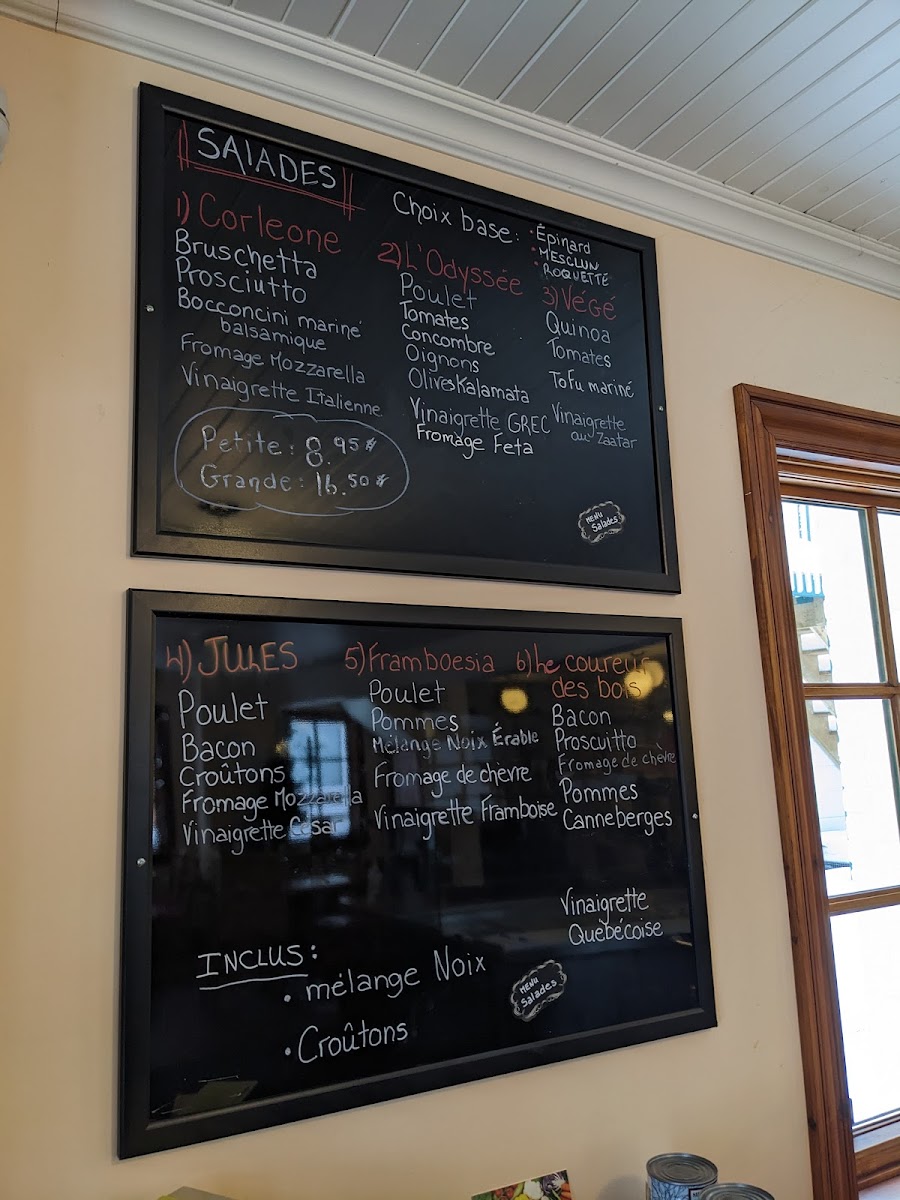 SALADES
Choix base:
• Épinard
• MESCLUN
• ROQUETTE
1) Corleone
Bruschetta
Prosciutto
Bocconcini mariné
balsamique
Fromage Mozzarella
Vinaigrette Italienne
Petite: 8.95$
Grande: 16.50$
2) L'Odyssée
Poulet
Tomates
Concombre
Oignons
Olives Kalamata
Vinaigrette GREC
Fromage Feta
3) Végé
Quinoa
Tomates
Tofu mariné
Vinaigrette
au Zaatar
MENU
Salades
4) JULES
Poulet
Bacon
Croûtons
Fromage Mozzarella
Vinaigrette César
5) Framboesia
Poulet
Pommes
Mélange Noix Érable
Fromage de chèvre
Vinaigrette Framboise
6) Le coureur
des bois
Bacon
Proscuitto
Fromage de chèvre
Pommes
Canneberges
Vinaigrette
Québécoise
INCLUS:
• mélange Noix
• Croûtons
MENU
Salades